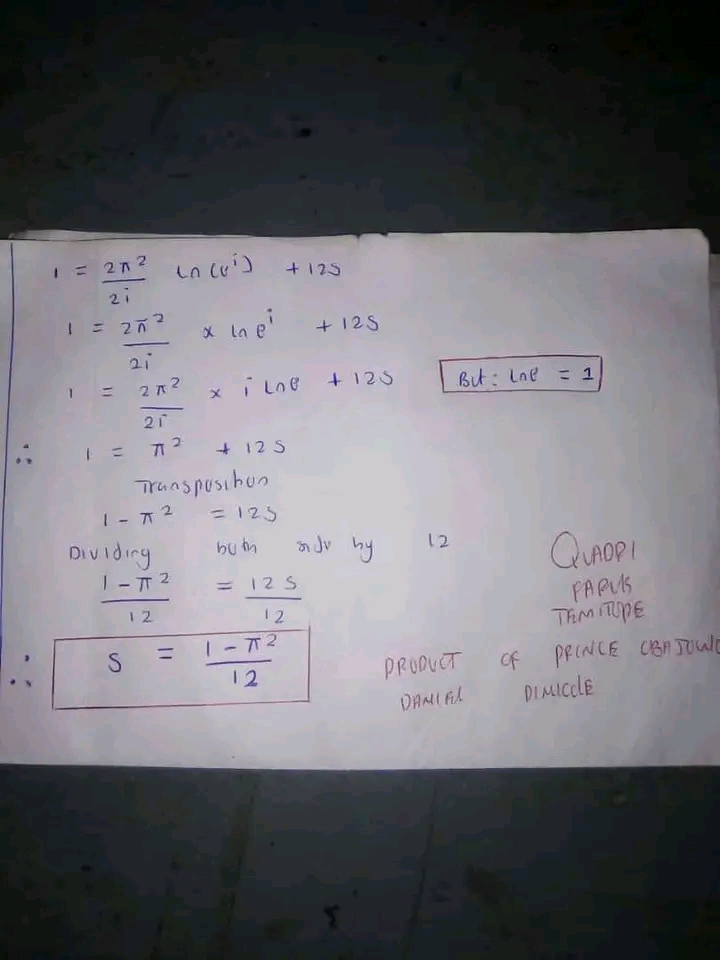 1 = 2π²/2i Ln(e^i) + 12S
1 = 2π²/2i × Ln e^i + 12S
1 = 2π²/2i × i Ln e + 12S
But: Lne = 1
∴ 1 = π² + 12S
Transposition
1 - π² = 12S
Dividing both side by 12
(1 - π²)/12 = 12S/12
∴ S = (1 - π²)/12
QUADRI
TEMITOPE
PRODUCT OF PRINCE
DANIEL